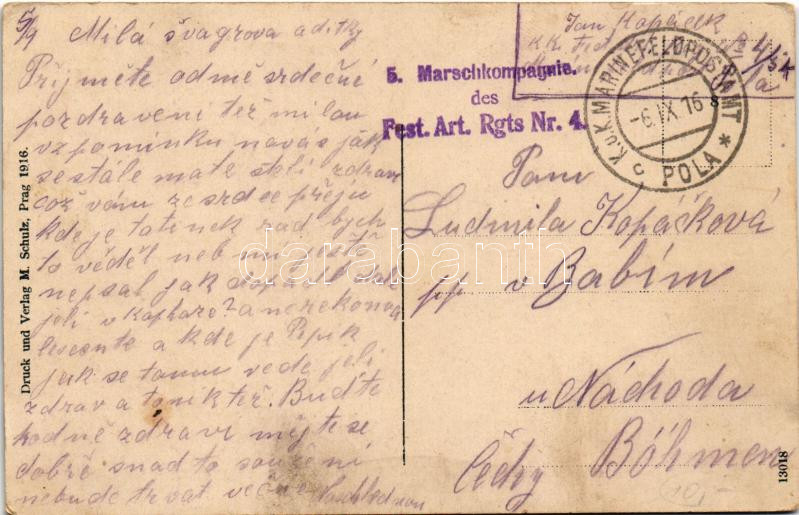 5/9 Milá švagrova a ditky
Přijměte odmě srdečné
pozdraveni též milou
vzpomínku na vás jak
se stále mate stéli zdrav
což vám ze srdce přeju
kde je tatinek rad bych
to věděl neb mi ješte
nepsal jak
jeli v a
a kde je Pepik
jak se tamu vede jeli
zdrav a tonik též. Buďte
hodně zdravi mějte se
dobře snad to soužení
nebude trvat večne
Druck und Verlag M. Schulz, Prag 1916.
Jan Kopáček
5. Marschkompagnie.
des
Fest. Art. Rgts Nr. 4.
K.u.K. MARINEFELDPOSTAMT
-6.IX.16 8
c POLA *
Pani
Ludmila Kopáčková
pp v Babím
u Náchoda
Čechy Böhmen
13018
darabanth